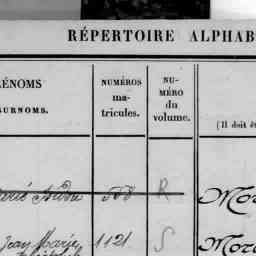 RÉPERTOIRE ALPHAB
RÉNOMS
SURNOMS.
NUMÉROS
ma-
tricules.
NU-
MÉRO
du
volume.
(Il doit ê
R
Mo
Jean Marie 1121 S Mor